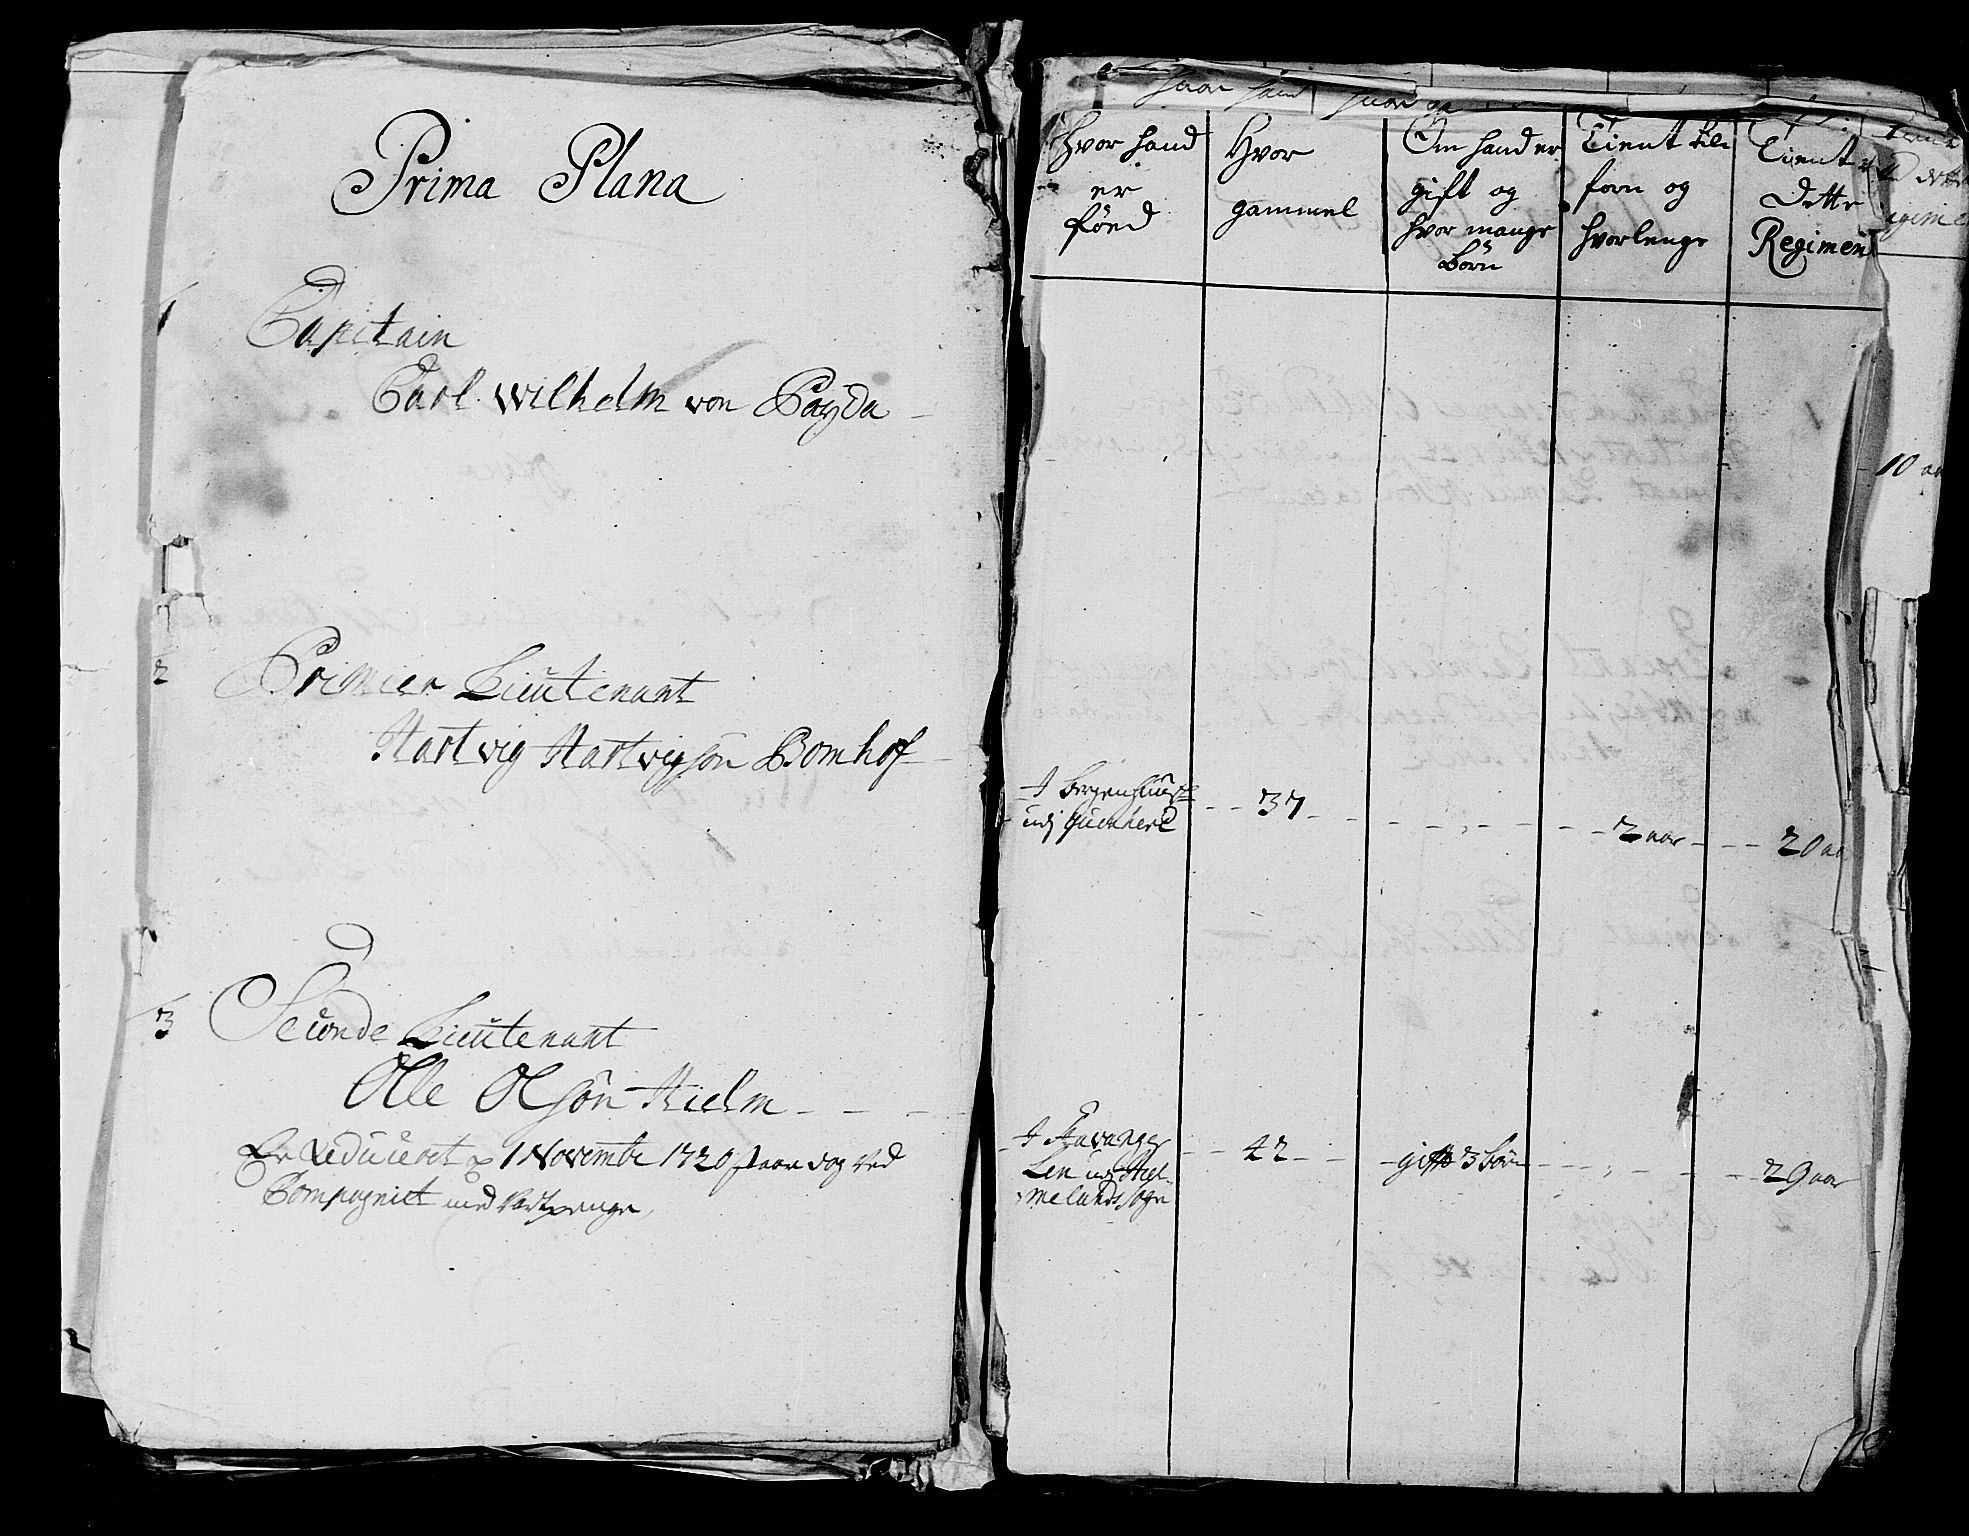 Prima Plana
1
Capitain
Carl Wilhelm von
2
Primier Lieutenant
Hartvig Hartvigsön Bomhof
3
Secunde Lieutenant
Olle Olsön Hielm
Er Reduceret 1 Novembr 1720 staar dog ved
Compagniet med Vartpenge
Hvor hand
er
föed
Hvor
gammel
Om hand er
gift og
hvor mange
börn
Tient tilforn og
hvorlenge
Tient
dette
Regimen
10 aa
I Bergenhuus
udj
37
2 aar
20 aa
I Stavanger
Len udj Hiel-
melands sogn
42
gift 3 börn
29 aar